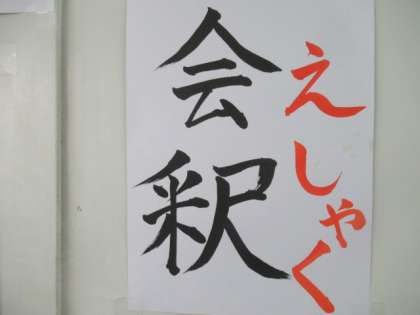 会釈
えしゃく